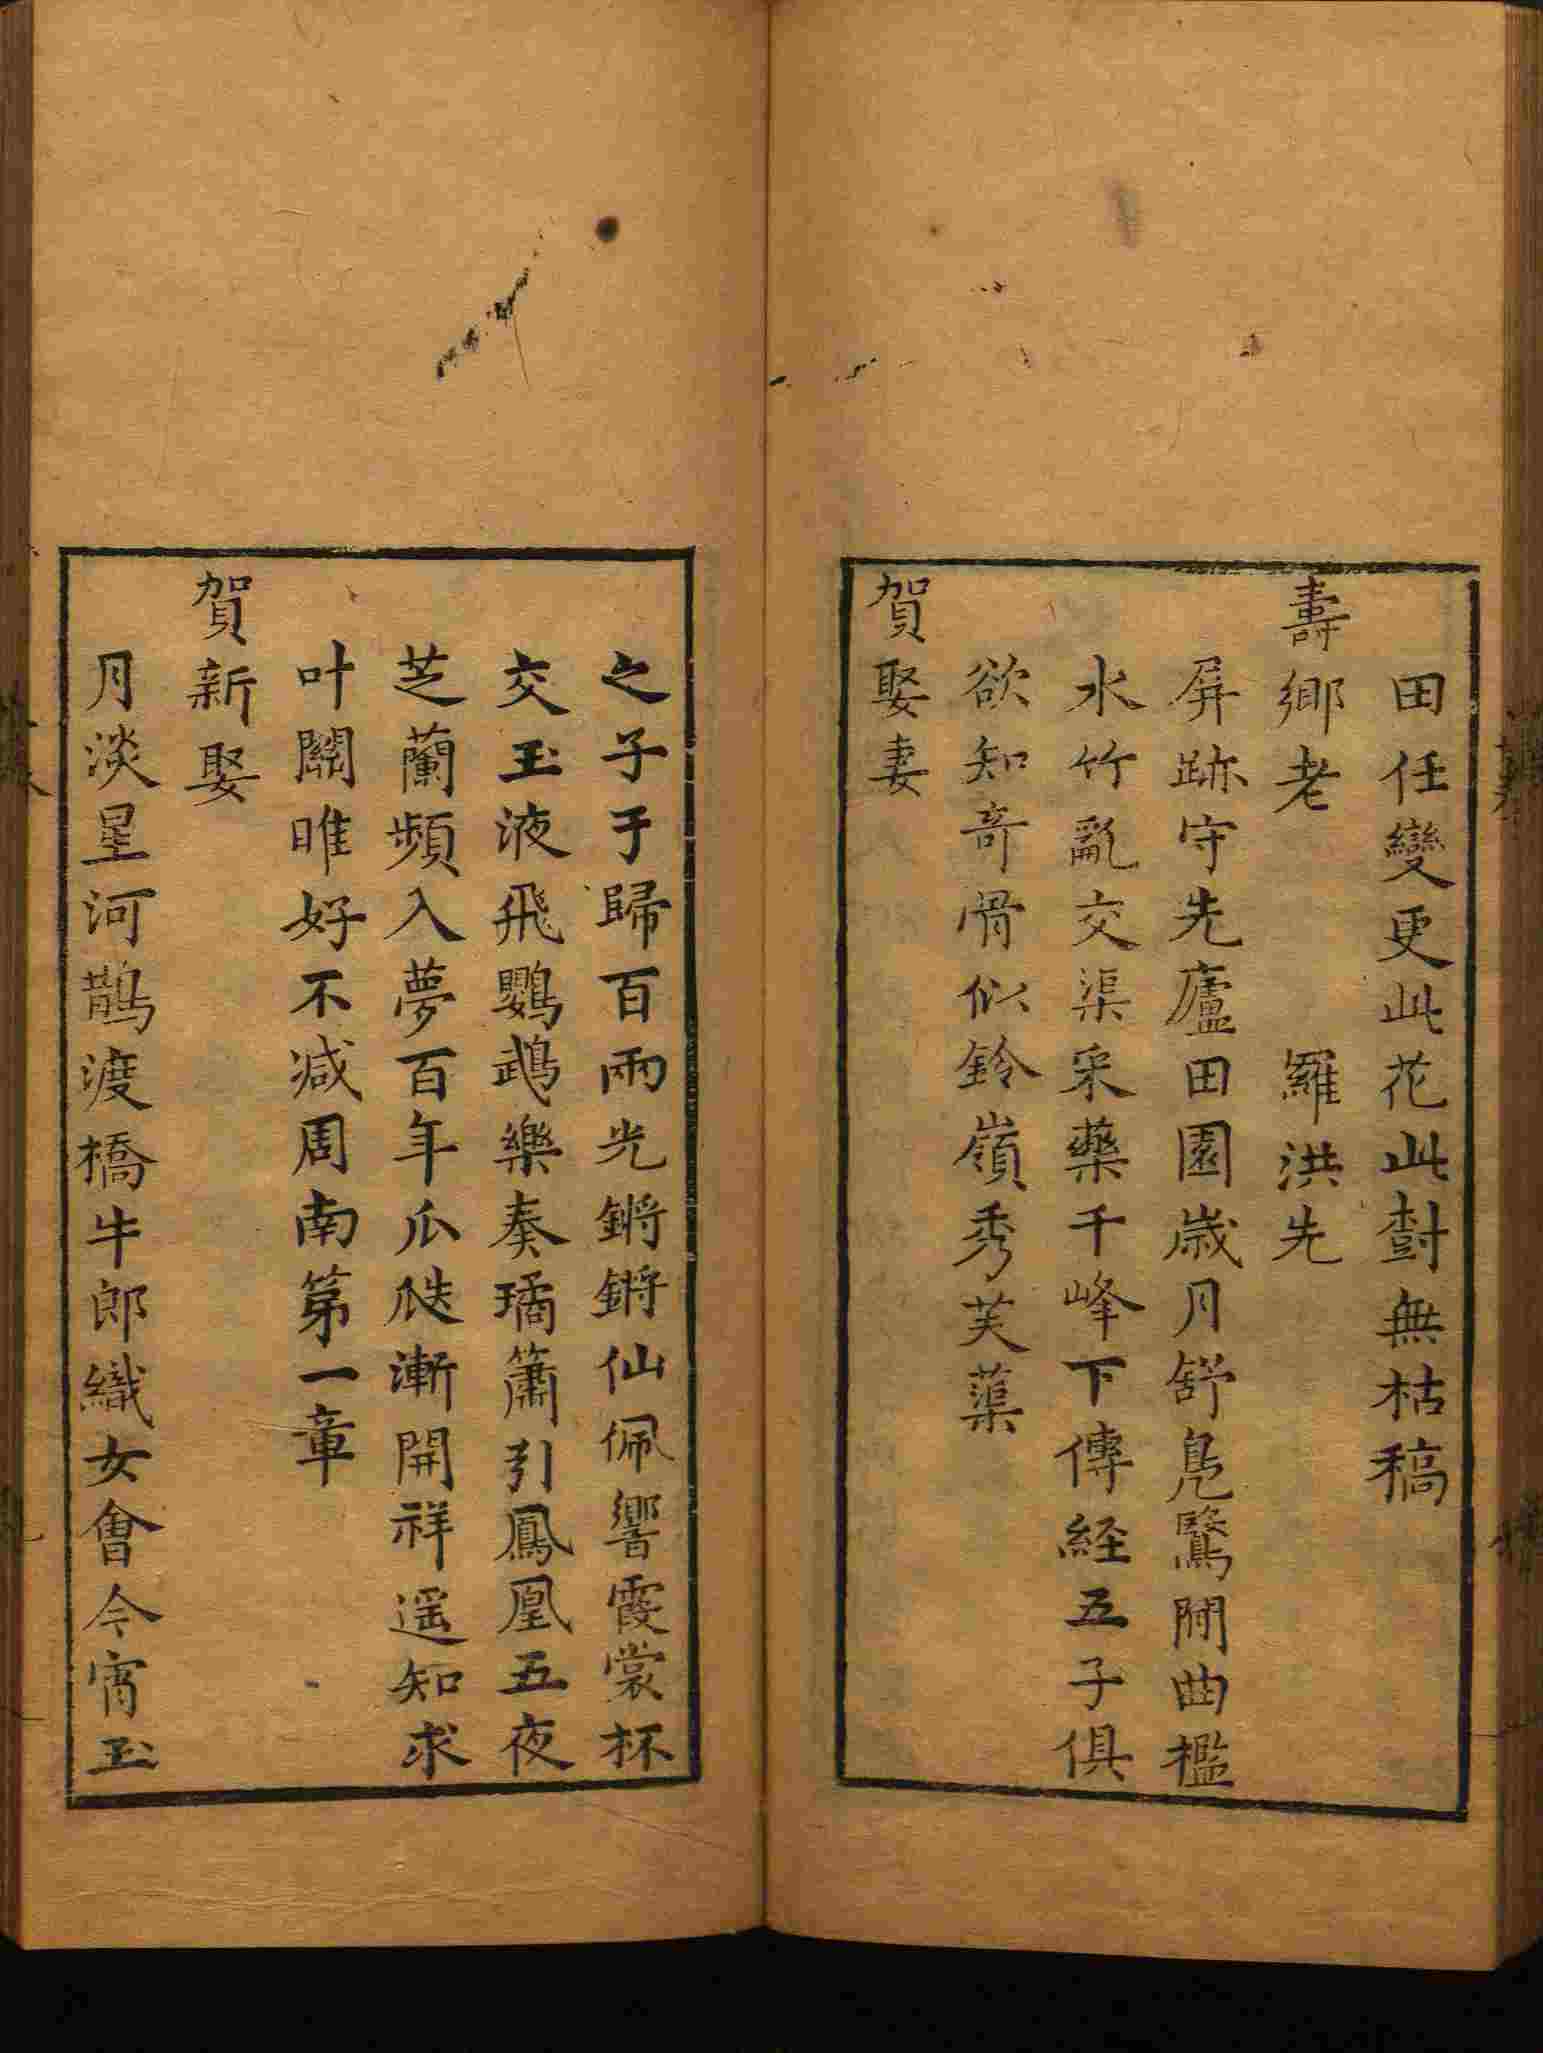 田任變更此花此樹無枯稿
壽鄉老 羅洪先
屏跡守先廬田園歳月舒鳧鷖閙曲檻
水竹亂交渠采藥千峰下傳経五子俱
欲知竒骨似鈴嶺秀芙蕖
賀娶妻
之子于歸百兩光鏘鏘仙佩響霞裳杯
交玉液飛鸚鵡樂奏璚簫引鳳凰五夜
芝蘭頻入夢百年瓜瓞漸開祥遥知求
叶關睢好不减周南第一章
賀新娶
月淡星河鵲渡橋牛郎織女會今宵玉